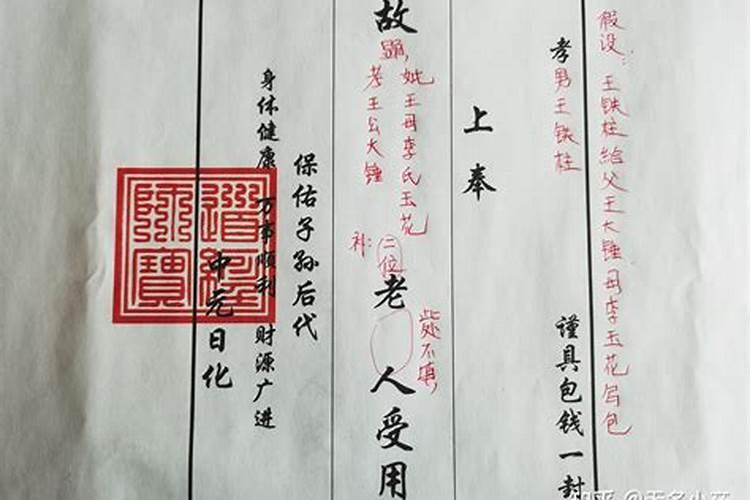 假设：王铁柱给父王大锤母李玉花写包
孝男王铁柱 谨具包钱一封
上奉
故
显
妣王母李氏玉花
考王公大锤
补：二位
老 人受用
此处不填
保佑子孙后代
身体健康 万事顺利 财源广进
中元日化
道經師寶
知乎